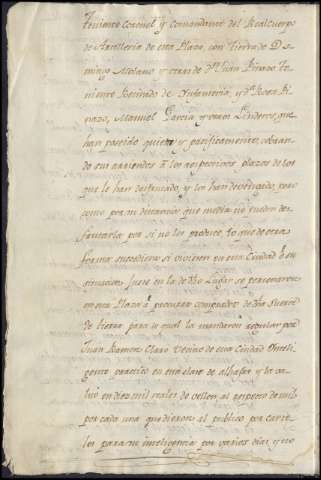 Teniente Coronel y Comandante del Real Cuerpo
de Artilleria de esta Plaza, con tierra de Do-
mingo Molano y otras de Dn. Juan Pizarro Te-
niente Retirado de Infanteria, y Dn.
Manuel Garcia y otros Linderos, que
han poseido quieta y pacificamente, cobran-
do sus arriendos a los respectivos plazos de los
que le han disfrutado, y les han devengado, pero
como por su distancia que media no pueden dis-
frutarla por si no les produce lo que de otra
forma sucediera si vivieran en esta Ciudad ô su
inmediacion. Junto en la de dho Lugar se personaron
en esta Plaza á procurar comprador de dha suerte
de tierra para lo qual la mandaron regular por
Juan Ramon Claro Vecino de esta Ciudad Yntelig-
gente practico en esta clase de alhajas y la va-
luó en diez mil reales de vellon al respecto de mil
por cada una que dieron al publico por carte-
les para su inteligencia por varios dias y no